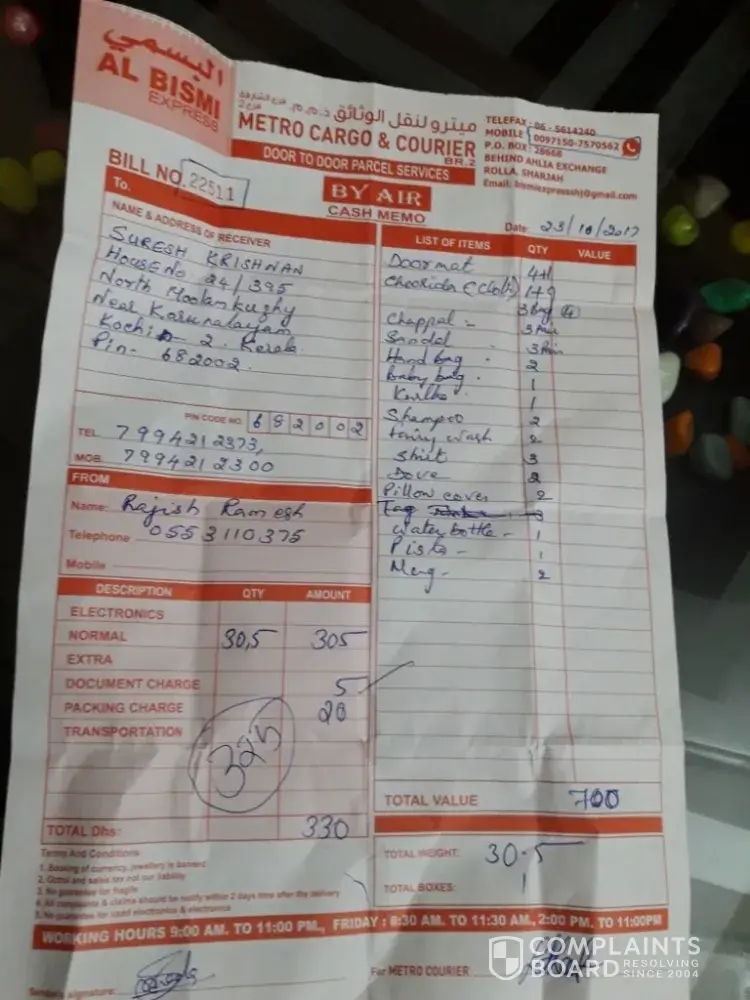 البسمي
AL BISMI
EXPRESS
ميترو لنقل الوثائق ذ.م.م. فرع الشارقة
METRO CARGO & COURIER
BR.2
DOOR TO DOOR PARCEL SERVICES
TELEFAX : 06 - 5614240
MOBILE : 0097150-7570562
P.O. BOX : 28668
BEHIND AHLIA EXCHANGE
ROLLA, SHARJAH
Email: bismiexpressshj@gmail.com
BILL NO. 22511
BY AIR
CASH MEMO
Date: 23/10/2017
To.
NAME & ADDRESS OF RECEIVER
SURESH KRISHNAN
House No 24/395
North Moolamkuzhy
Near Karunalayam
Kochi - 2. Kerala.
Pin - 682002.
PIN CODE NO. 682002
TEL. 7994212373,
MOB. 7994212300
FROM
Name: Rajish Ramesh
Telephone 0553110375
Mobile
DESCRIPTION QTY AMOUNT
ELECTRONICS
NORMAL 30,5 305
EXTRA
DOCUMENT CHARGE 5
PACKING CHARGE 20
TRANSPORTATION
325
TOTAL Dhs: 330
LIST OF ITEMS QTY VALUE
Doormat 4+1
(Cloth) 1+9
3 Bag 4
Chappal - 3 Pair
Sandal 3 Pair
Hand bag - 2
Baby bag - 1
1
Shampoo 2
wash 2
Shirt 3
Dove 2
Pillow cover 2
Tag 3
water bottle - 1
Pista - 1
Mug - 2
TOTAL VALUE 700
TOTAL WEIGHT: 30.5
TOTAL BOXES: 1
Terms And Conditions
1. Booking of currency, jewellery is banned
2. Octroi and sales tax not our liability
3. No guarantee for fragile
4. All complaints & claims should be notify within 2 days time after the delivery
5. No guarantee for used electronics & electronics
WORKING HOURS 9:00 AM. TO 11:00 PM., FRIDAY : 8:30 AM. TO 11:30 AM., 2:00 PM. TO 11:00PM
Sender's Signature:
For METRO COURIER
COMPLAINTS
BOARD RESOLVING
SINCE 2004